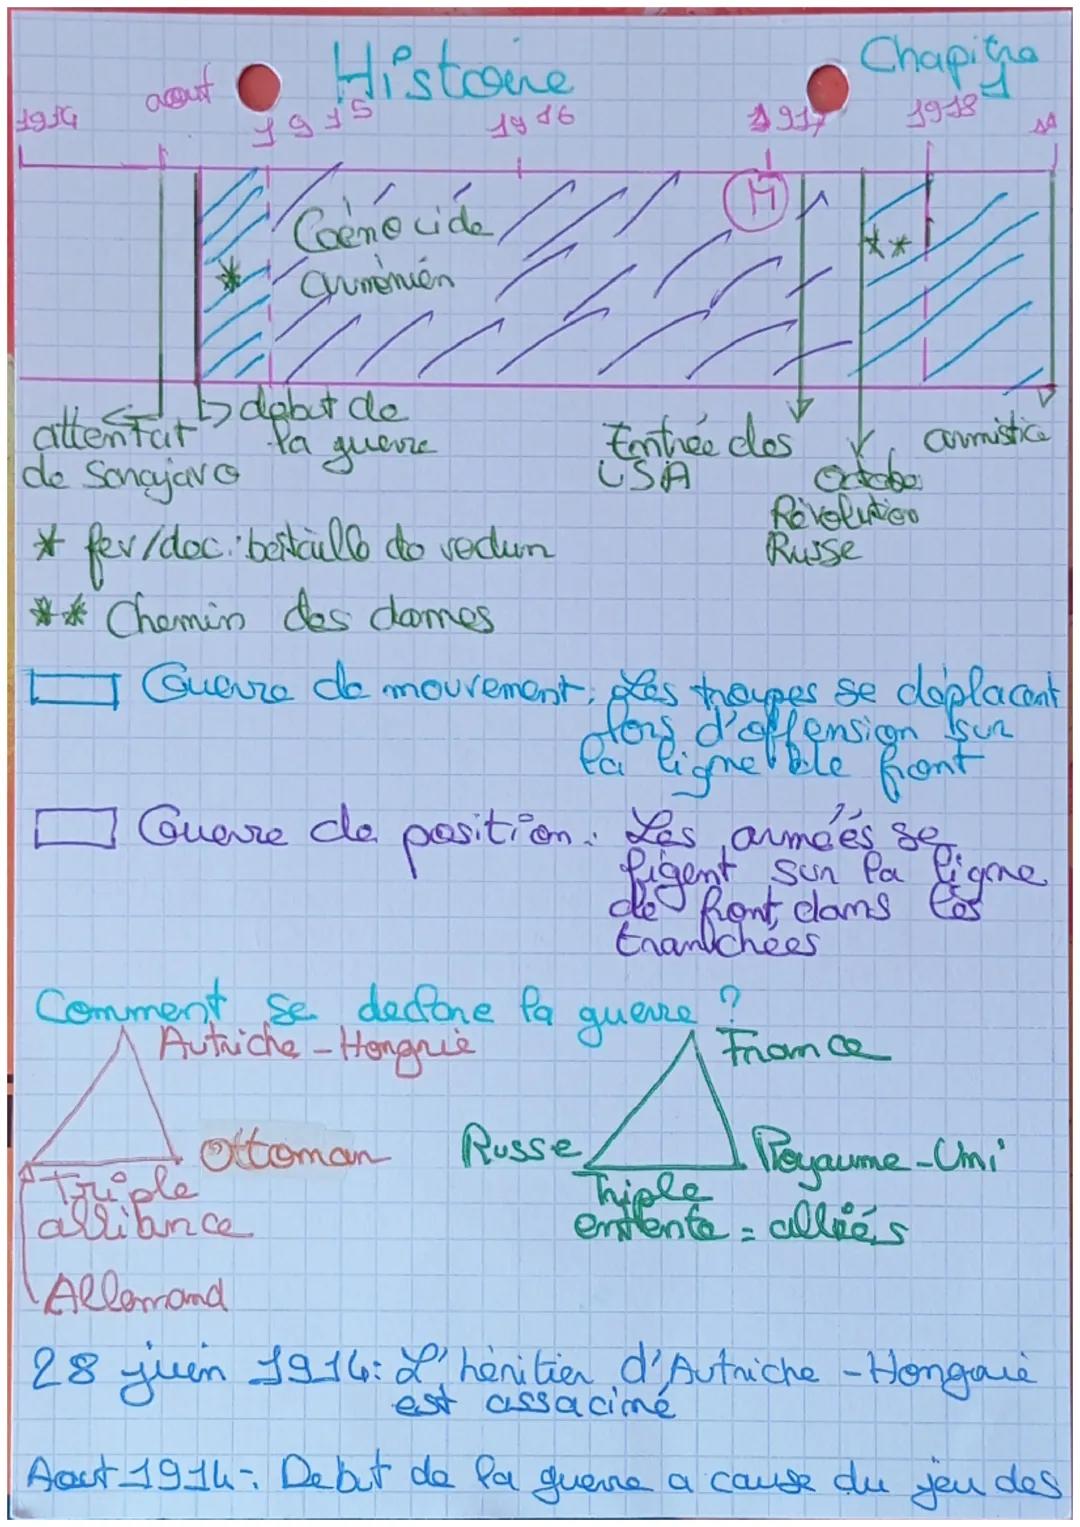 Histoire
Chapitre
1
1914
aout
1915
1916
1917
1918
11
Génocide
arménien
M
*
**
attentat
de Sarajavo
debut de
la guerre
Entrée des
USA
Octobe
Révolution
Russe
armistice
* fev/dec: bataille de verdun
** Chemin des dames
Guerre de mouvement: Les troupes se déplacent
lors d'offension sur
la ligne de front
Guerre de position: Les armées se
figent sur la ligne
de front, dans les
tranchées
Comment se declare la guerre ?
Autriche-Hongrie
France
Ottoman
Russe
Royaume-Uni
Triple
alliance
Triple
entente = alliés
Allemand
28 juin 1914: L'héritier d'Autriche-Hongrie
est assaciné
Aout 1914: Debut de la guerre a cause du jeu des